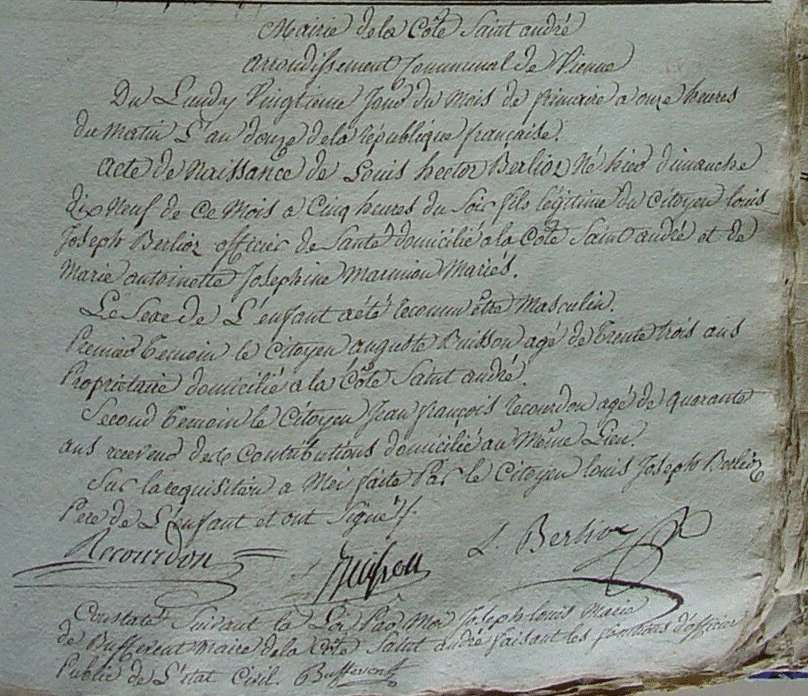 Mairie de la Côte Saint andré
arrondissement Communal de Vienne
Du Lundy Vingtieme Jour du mois de frimaire a onze heures
du matin L'an douze de la république française.
acte de Naissance de Louis hector Berlioz Né hier dimanche
dix Neuf de Ce Mois a Cinq heures du Soir fils légitime du Citoyen louis
Joseph Berlioz officier de Santé domicilié a la Côte Saint andré et de
Marie antoinette Joséphine Marmion Mariés.
Le Sexe de L'enfant a été reconnu être Masculin.
Premier temoin le Citoyen auguste Buisson agé de trente trois ans
Propriétaire domicilié a la Côte Saint andré.
Second temoin le Citoyen Jean françois recourdon agé de quarante
ans receveur des Contributions domicilié au Même Lieu.
Sur la requisition a Moi faite Par le Citoyen louis Joseph Berlioz
Pere de L'enfant et ont Signé
Recourdon Buisson L. Berlioz
Constaté Suivant la Loi Par Moi Joseph louis Marie
de Buffevent Maire de la Côte Saint andré faisant les fonctions d'officier
Public de L'état Civil. Buffevent